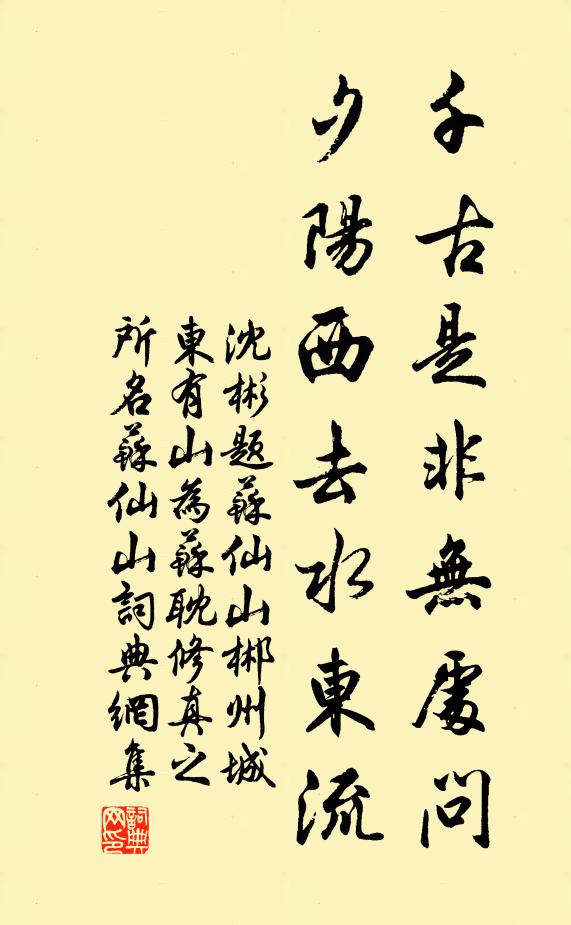 千古是非無處問
夕陽西去水東流
沈彬題蘇仙山郴州城
東有山為蘇耽修真之
所名蘇仙山詞典網集
詞典網印